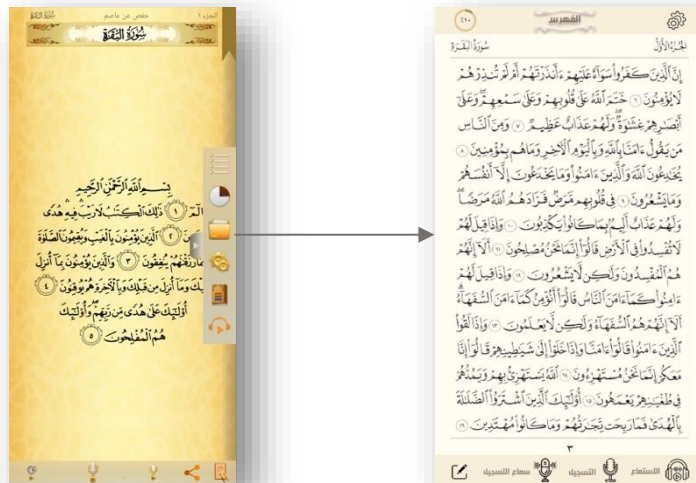 الجزء ١
حفص عن عاصم
سُورَةُ البَقَرَة
سُورَةُ البَقَرَةِ
بِسْمِ اللَّهِ الرَّحْمَٰنِ الرَّحِيمِ
الٓمٓ ١ ذَٰلِكَ ٱلْكِتَٰبُ لَا رَيْبَ فِيهِ هُدًى
٢ ٱلَّذِينَ يُؤْمِنُونَ بِٱلْغَيْبِ وَيُقِيمُونَ ٱلصَّلَوٰةَ
رَزَقْنَٰهُمْ يُنفِقُونَ ٣ وَٱلَّذِينَ يُؤْمِنُونَ بِمَآ أُنزِلَ
وَمَآ أُنزِلَ مِن قَبْلِكَ وَبِٱلْءَاخِرَةِ هُمْ يُوقِنُونَ ٤
أُو۟لَٰٓئِكَ عَلَىٰ هُدًى مِّن رَّبِّهِمْ وَأُو۟لَٰٓئِكَ
هُمُ ٱلْمُفْلِحُونَ ٥
الفهرس
الجُزْءُ الأَوَّلُ
سُورَةُ البَقَرَةِ
إِنَّ ٱلَّذِينَ كَفَرُوا۟ سَوَآءٌ عَلَيْهِمْ ءَأَنذَرْتَهُمْ أَمْ لَمْ تُنذِرْهُمْ
لَا يُؤْمِنُونَ ٦ خَتَمَ ٱللَّهُ عَلَىٰ قُلُوبِهِمْ وَعَلَىٰ سَمْعِهِمْ وَعَلَىٰٓ
أَبْصَٰرِهِمْ غِشَٰوَةٌ وَلَهُمْ عَذَابٌ عَظِيمٌ ٧ وَمِنَ ٱلنَّاسِ
مَن يَقُولُ ءَامَنَّا بِٱللَّهِ وَبِٱلْيَوْمِ ٱلْءَاخِرِ وَمَا هُم بِمُؤْمِنِينَ ٨
يُخَٰدِعُونَ ٱللَّهَ وَٱلَّذِينَ ءَامَنُوا۟ وَمَا يَخْدَعُونَ إِلَّآ أَنفُسَهُمْ
وَمَا يَشْعُرُونَ ٩ فِى قُلُوبِهِم مَّرَضٌ فَزَادَهُمُ ٱللَّهُ مَرَضًا
وَلَهُمْ عَذَابٌ أَلِيمٌۢ بِمَا كَانُوا۟ يَكْذِبُونَ ١٠ وَإِذَا قِيلَ لَهُمْ
لَا تُفْسِدُوا۟ فِى ٱلْأَرْضِ قَالُوٓا۟ إِنَّمَا نَحْنُ مُصْلِحُونَ ١١ أَلَآ إِنَّهُمْ
هُمُ ٱلْمُفْسِدُونَ وَلَٰكِن لَّا يَشْعُرُونَ ١٢ وَإِذَا قِيلَ لَهُمْ
ءَامِنُوا۟ كَمَآ ءَامَنَ ٱلنَّاسُ قَالُوٓا۟ أَنُؤْمِنُ كَمَآ ءَامَنَ ٱلسُّفَهَآءُ
أَلَآ إِنَّهُمْ هُمُ ٱلسُّفَهَآءُ وَلَٰكِن لَّا يَعْلَمُونَ ١٣ وَإِذَا لَقُوا۟
ٱلَّذِينَ ءَامَنُوا۟ قَالُوٓا۟ ءَامَنَّا وَإِذَا خَلَوْا۟ إِلَىٰ شَيَٰطِينِهِمْ قَالُوٓا۟ إِنَّا
مَعَكُمْ إِنَّمَا نَحْنُ مُسْتَهْزِءُونَ ١٤ ٱللَّهُ يَسْتَهْزِئُ بِهِمْ وَيَمُدُّهُمْ
فِى طُغْيَٰنِهِمْ يَعْمَهُونَ ١٥ أُو۟لَٰٓئِكَ ٱلَّذِينَ ٱشْتَرَوُا۟ ٱلضَّلَٰلَةَ
بِٱلْهُدَىٰ فَمَا رَبِحَت تِّجَٰرَتُهُمْ وَمَا كَانُوا۟ مُهْتَدِينَ ١٦
٣
الأستماع
التسجيل
سماع التسجيل